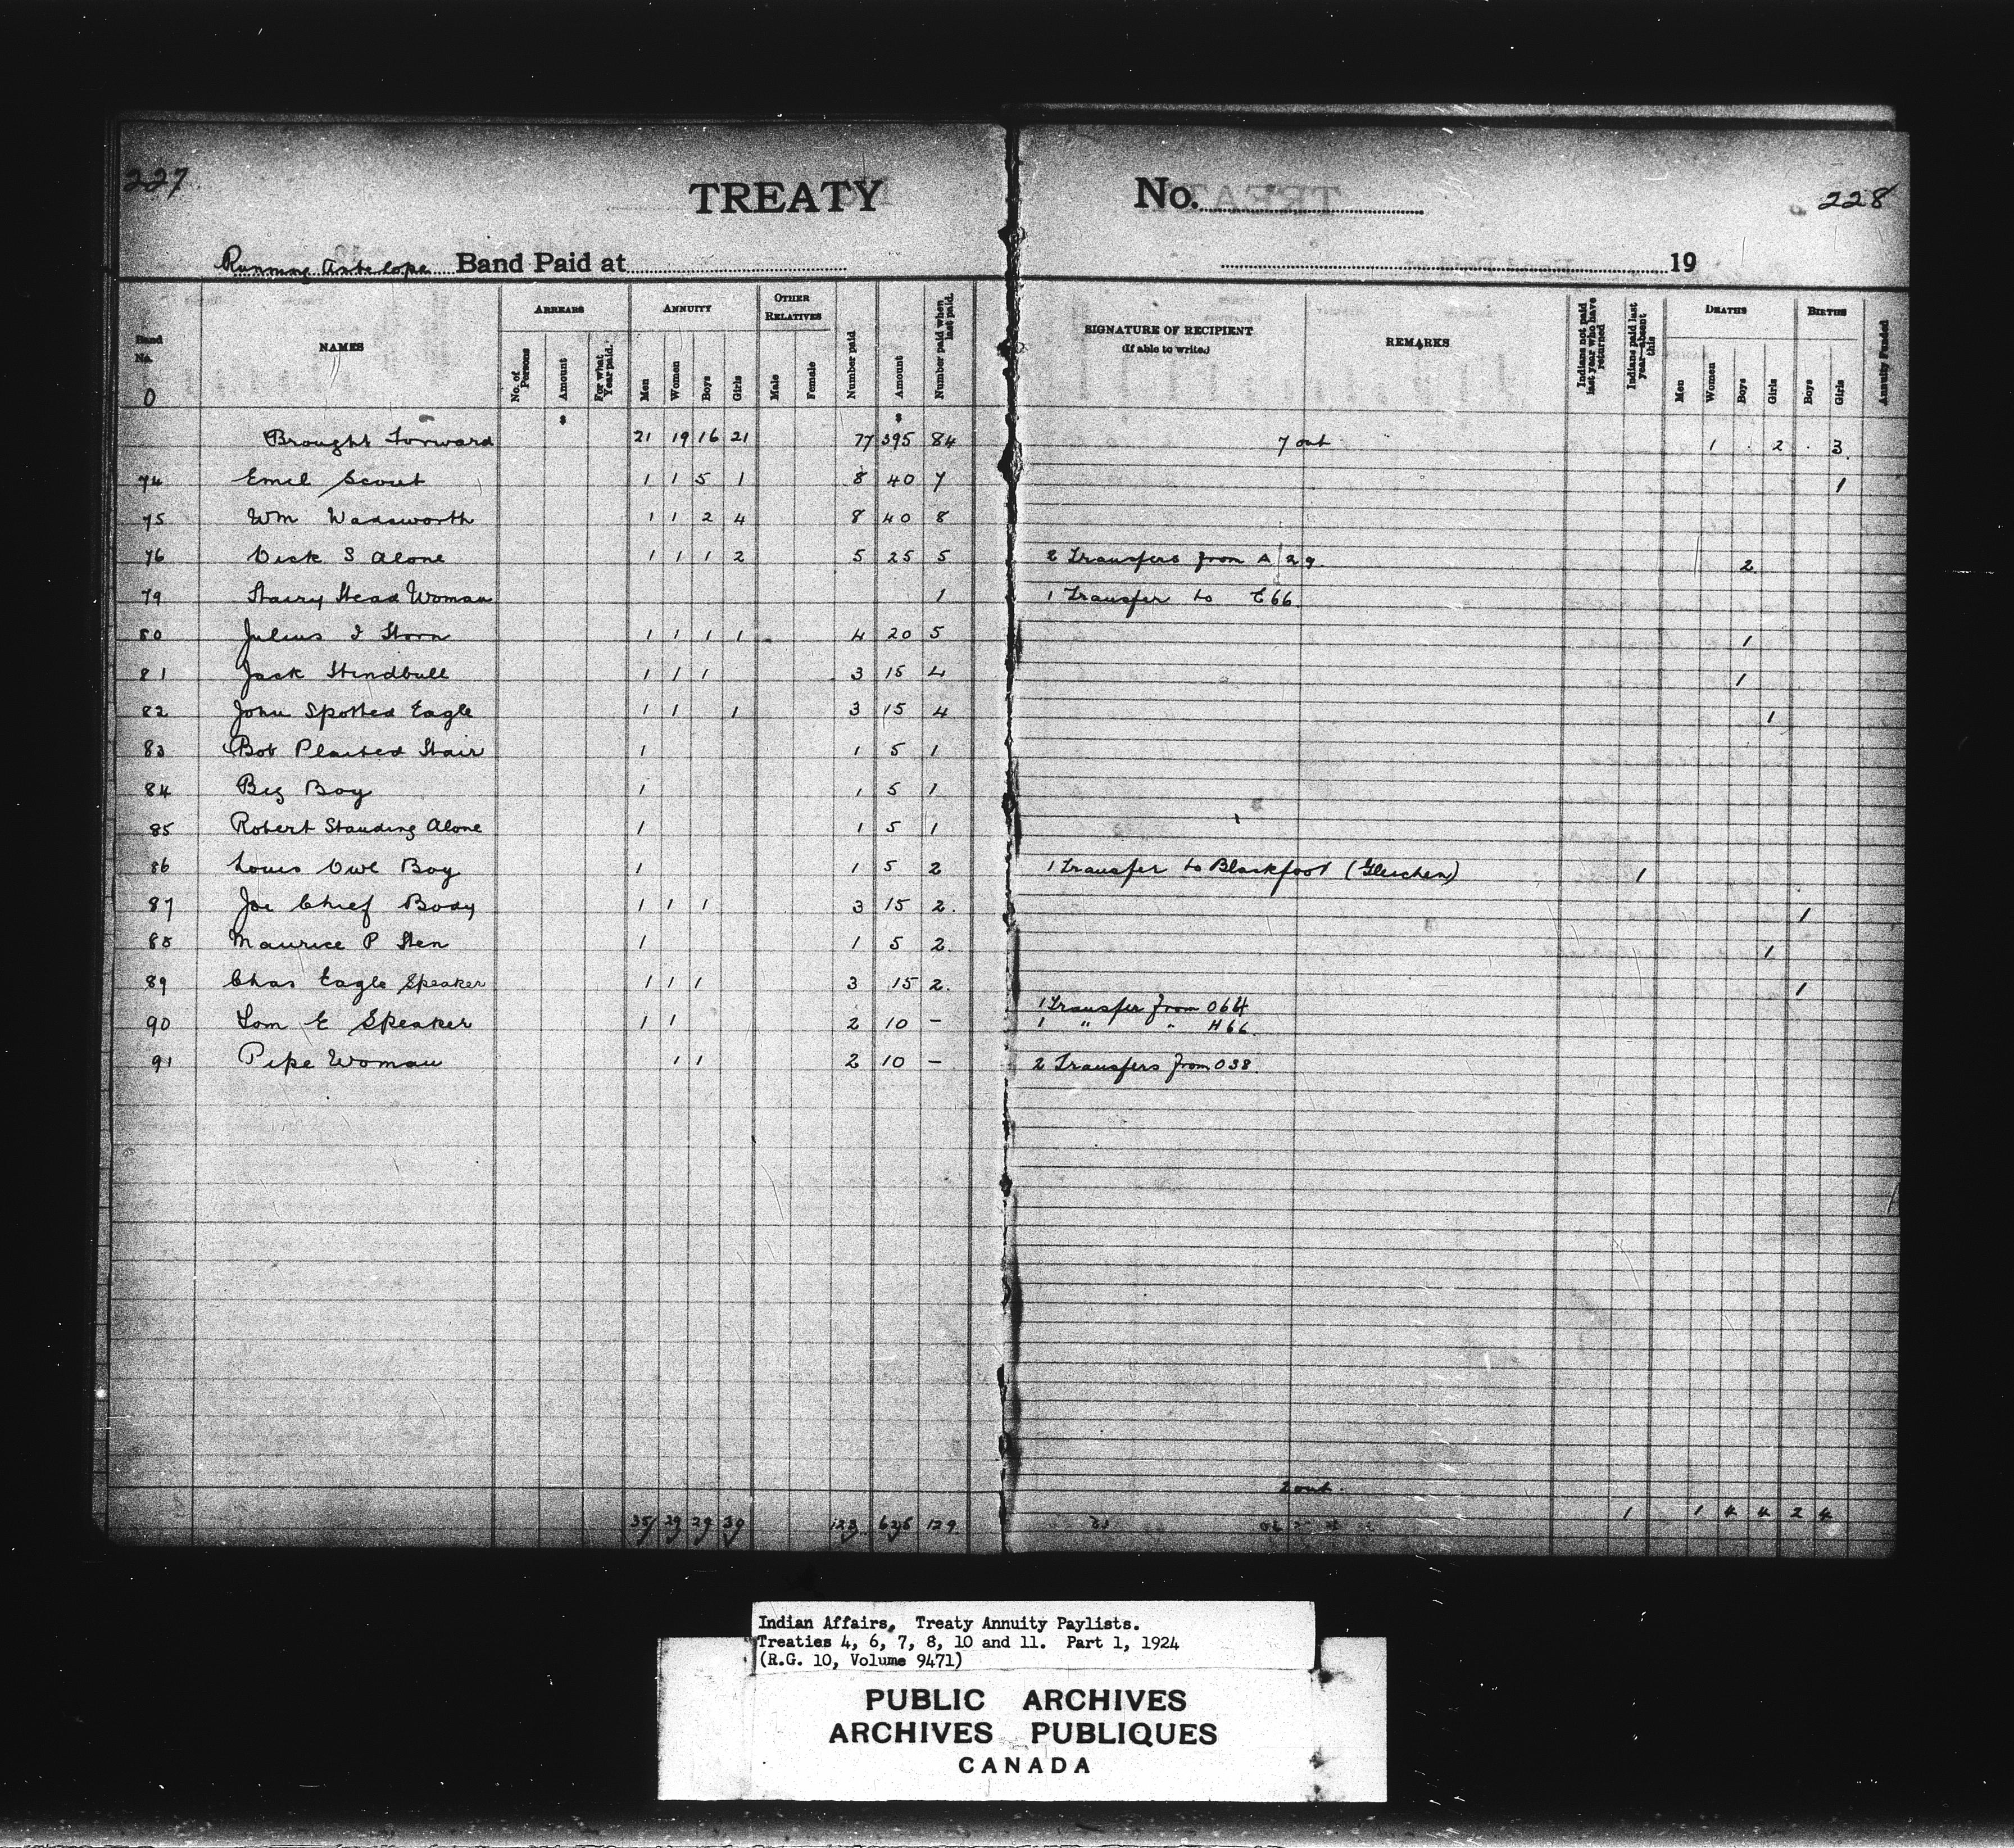 227
TREATY No. 228
Running Antelope Band Paid at 19
Band No. NAMES ARREARS ANNUITY OTHER RELATIVES Number paid Amount Number paid when last paid. SIGNATURE OF RECIPIENT (If able to write.) REMARKS Indians not paid last year who have returned Indians paid last year—absent this DEATHS BIRTHS Annuity Funded
O No. of Persons Amount For what Year paid. Men Women Boys Girls Male Female Men Women Boys Girls Boys Girls
$ $
Brought Forward 21 19 16 21 77 395 84 7 out 1 2 3
74 Emil Scout 1 1 5 1 8 40 7 1
75 Wm Wadsworth 1 1 2 4 8 40 8
76 Dick S Alone 1 1 1 2 5 25 5 2 Transfers from A 29 2
79 Hairy Head Woman 1 1 Transfer to E66
80 Julius I Horn 1 1 1 1 4 20 5 1
81 Jack Hindbull 1 1 1 3 15 4 1
82 John Spotted Eagle 1 1 1 3 15 4 1
83 Bob Plaited Hair 1 1 5 1
84 Big Boy 1 1 5 1
85 Robert Standing Alone 1 1 5 1
86 Louis Owl Boy 1 1 5 2 1 Transfer to Blackfoot (Gleichen) 1
87 Joe Chief Body 1 1 1 3 15 2. 1
88 Maurice P Hen 1 1 5 2. 1
89 Chas Eagle Speaker 1 1 1 3 15 2. 1
90 Tom E Speaker 1 1 2 10 - 1 Transfer from O64
1 " " H66.
91 Pipe Woman 1 1 2 10 - 2 Transfers from O38
2 out.
35 29 29 30 123 625 129 1 1 4 4 2 4
Indian Affairs. Treaty Annuity Paylists.
Treaties 4, 6, 7, 8, 10 and 11. Part 1, 1924
(R.G. 10, Volume 9471)
PUBLIC ARCHIVES
ARCHIVES PUBLIQUES
CANADA